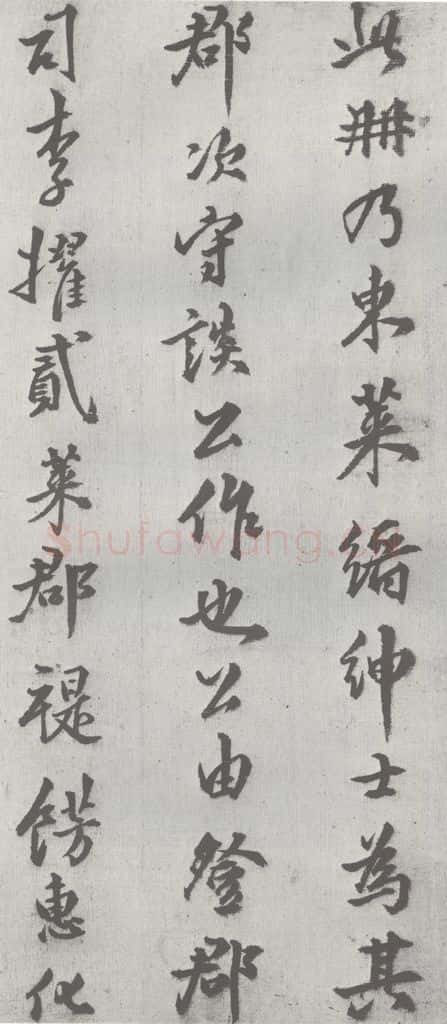 此冊乃東萊縉紳士為其
郡次守談公作也公由登郡
司李擢貳萊郡禔餝惠化
Shufawang.cn